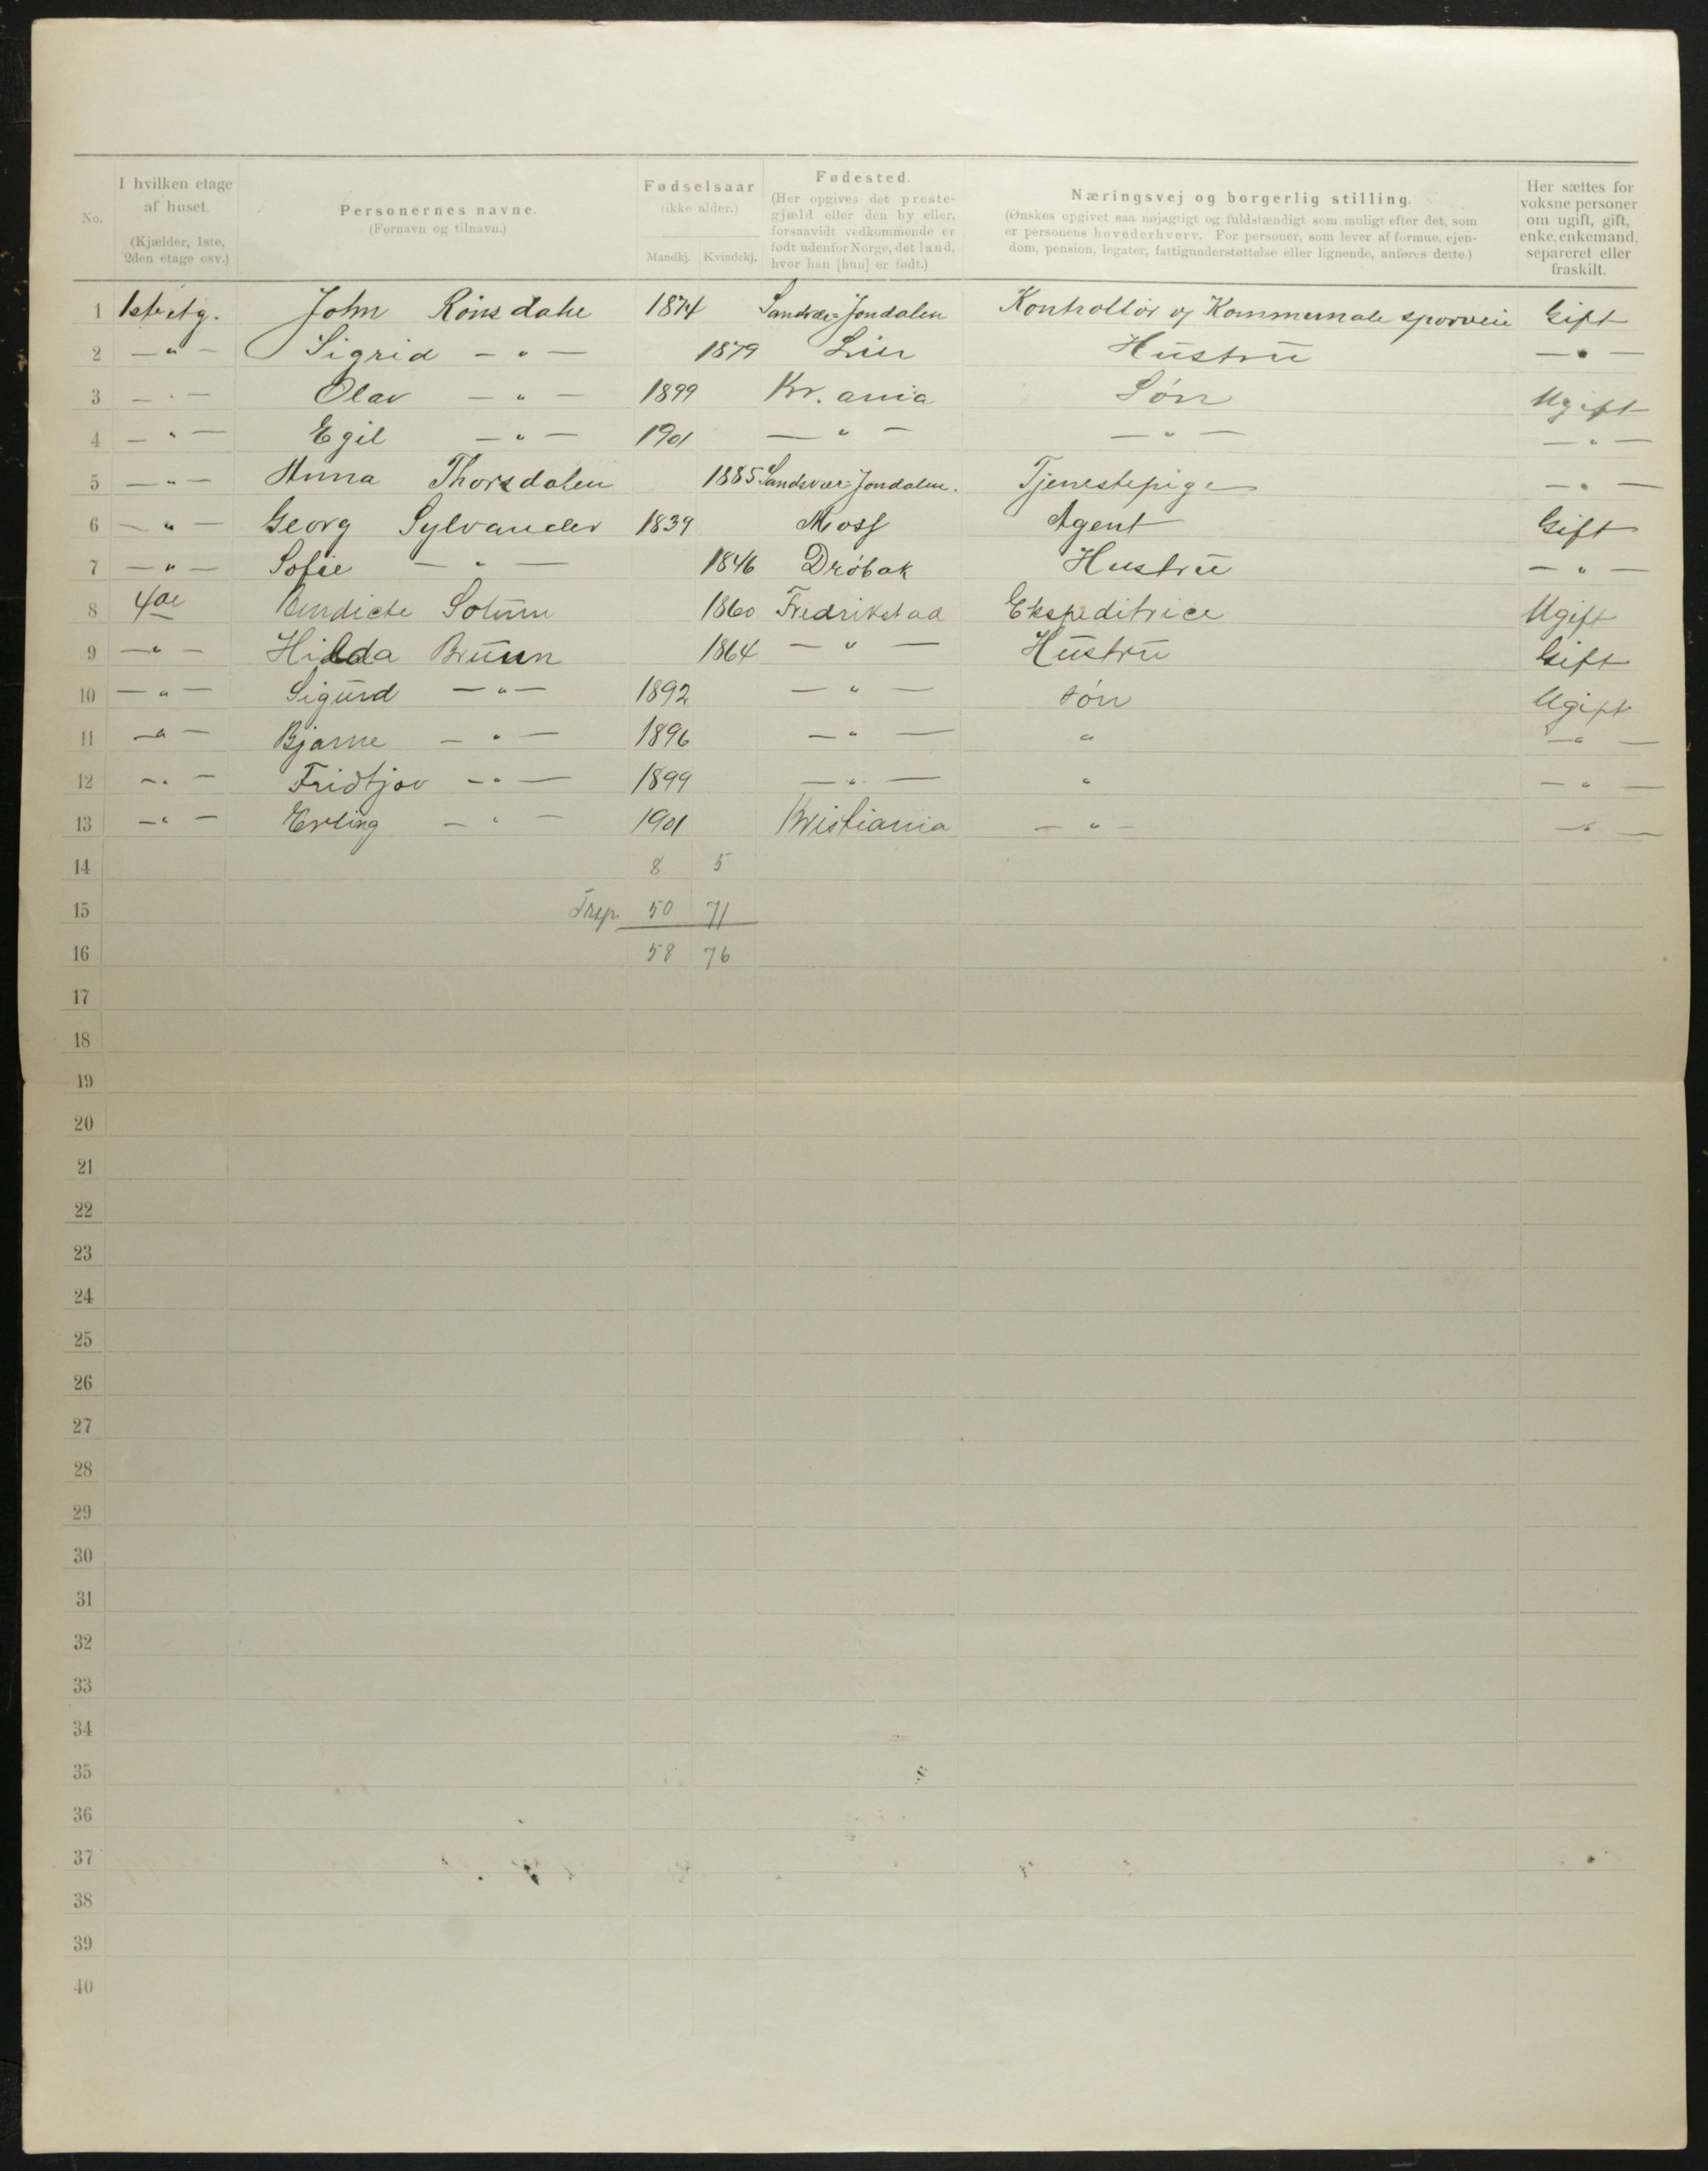 No. | I hvilken etage af huset. (Kjælder, 1ste, 2den etage osv.) | Personernes navne. (Fornavn og tilnavn.) | Fødselsaar (ikke alder.) Mandkj. Kvindekj. | Fødested. (Her opgives det prestegjæld eller den by eller, forsaavidt vedkommende er født udenfor Norge, det land, hvor han [hun] er født.) | Næringsvej og borgerlig stilling. (Ønskes opgivet saa nøjagtigt og fuldstændigt som muligt efter det, som er personens hovederhverv. For personer, som lever af formue, ejendom, pension, legater, fattigunderstøttelse eller lignende, anføres dette.) | Her sættes for voksne personer om ugift, gift, enke, enkemand, separeret eller fraskilt.
1 1ste etg. John Rønsdahl 1874 Sandsvær=Jondalen Kontrollør v/ Kommunale sporveie Gift
2 —"— Sigrid —"— 1879 Lier Hustru —"—
3 —"— Olav —"— 1899 Kr.ania Søn Ugift
4 —"— Egil —"— 1901 —"— —"— —"—
5 —"— Anna Thorsdalen 1885 Sandsvær=Jondalen. Tjenestepige —"—
6 —"— Georg Sylvander 1839 Moss Agent Gift
7 —"— Sofie —"— 1846 Drøbak Hustru —"—
8 4de Bendicte Solum 1860 Fredrikstad Ekspeditrice Ugift
9 —"— Hilda Bruun 1864 —"— Hustru Gift
10 —"— Sigurd —"— 1892 —"— søn Ugift
11 —"— Bjarne —"— 1896 —"— " —"—
12 —"— Fridtjov —"— 1899 —"— " —"—
13 —"— Erling —"— 1901 Kristiania —"— —"—
14 8 5
15 Trsp. 50 71
16 58 76
17
18
19
20
21
22
23
24
25
26
27
28
29
30
31
32
33
34
35
36
37
38
39
40